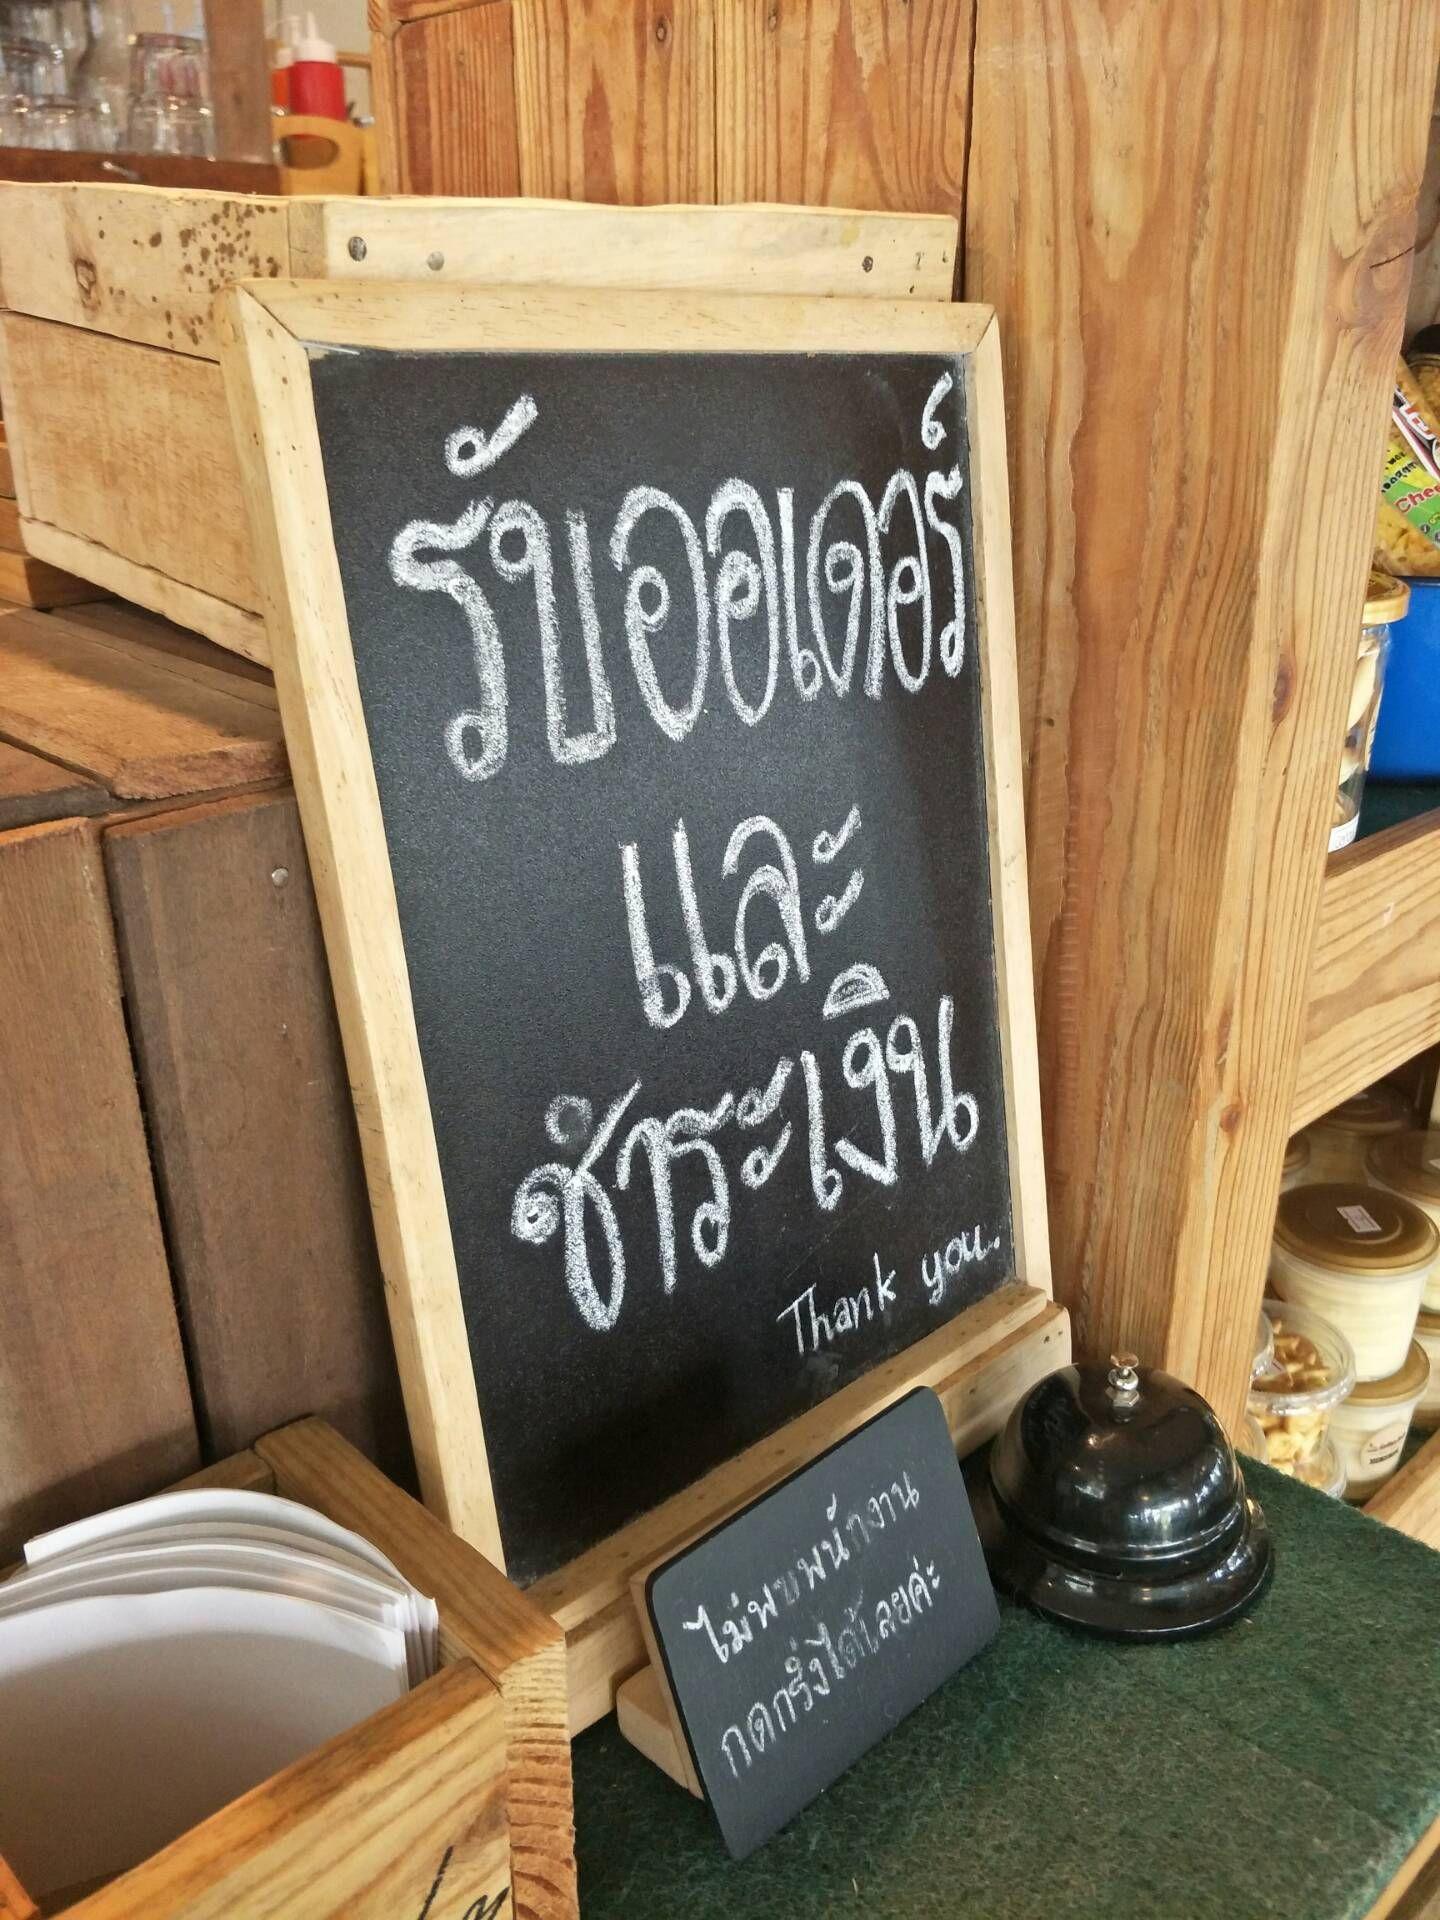 รับออเดอร์
และ
ชำระเงิน
Thank you.
ไม่พบพนักงาน
กดกริ่งได้เลยค่ะ
Chee